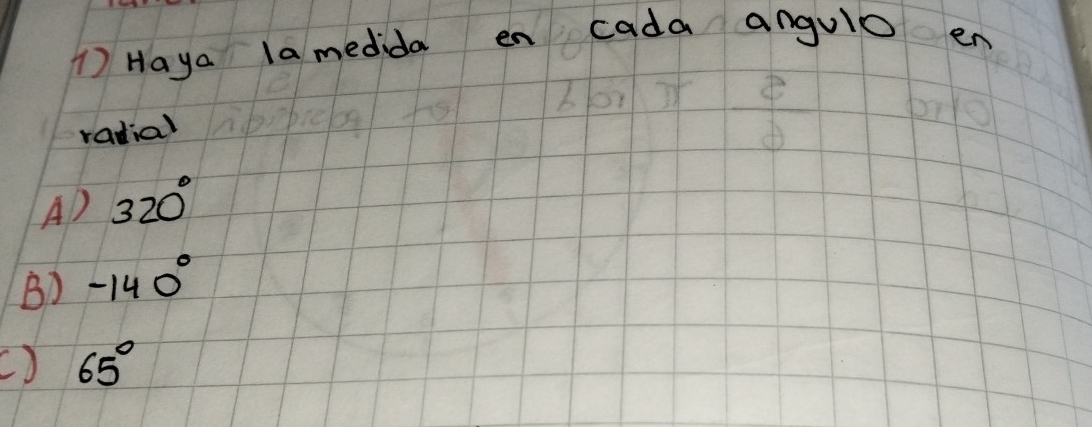 1) Haya la medida en cada angulo en
radial
A) 320°
B) -140°
C) 65°